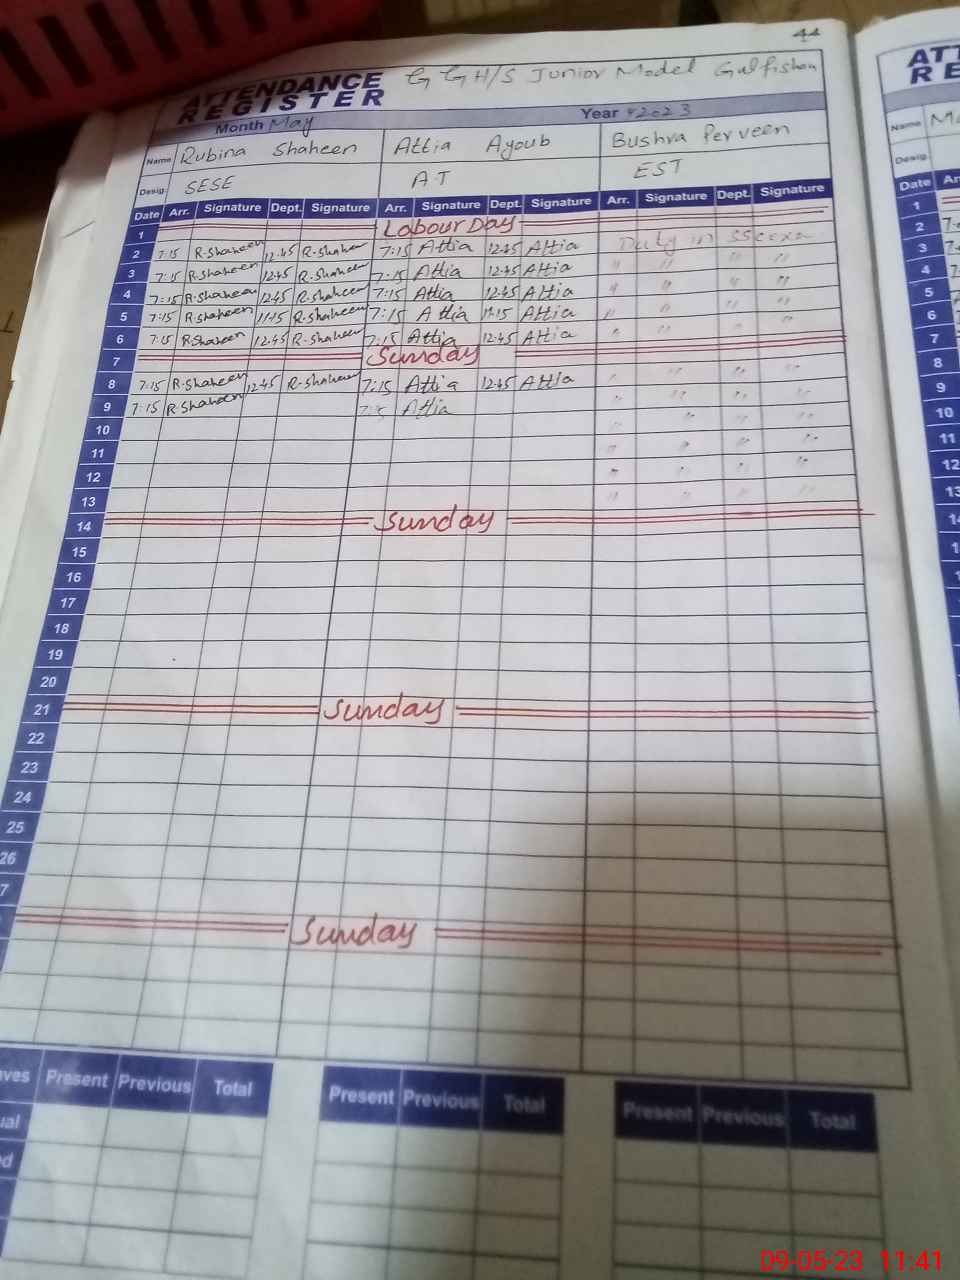 44
ATTENDANCE REGISTER G GH/S Junior Model Gulfishan
Month May Year 2023
Name Rubina Shaheen Attia Ayoub Bushra Perveen
Desig. SESE A.T EST
Date Arr. Signature Dept. Signature Arr. Signature Dept. Signature Arr. Signature Dept. Signature
1 Labour Day
2 7:15 R.Shaheen 12:45 R.Shaheen 7:15 Attia 12:45 Attia Duty in
3 7:15 R.Shaheen 12:45 R.Shaheen 7:15 Attia 12:45 Attia " " " "
4 7:15 R.Shaheen 12:45 R.Shaheen 7:15 Attia 12:45 Attia " " " "
5 7:15 R.Shaheen 11:15 R.Shaheen 7:15 Attia 11:15 Attia " " " "
6 7:15 R.Shaheen 12:45 R.Shaheen 7:15 Attia 12:45 Attia " " " "
7 Sunday
8 7:15 R.Shaheen 12:45 R.Shaheen 7:15 Attia 12:45 Attia " " " "
9 7:15 R.Shaheen 7:15 Attia " " " "
10 " " " "
11 " " " "
12 " " " "
13 " " " "
14 Sunday
15
16
17
18
19
20
21 Sunday
22
23
24
25
26
7
Sunday
ves Present Previous Total Present Previous Total Present Previous Total
ual
ed
ATT
RE
Name Ma
Desig.
Date Ar
1
2 7:
3 7
4 7
5
6
7
8
9
10
11
12
13
09-05-23 11:41